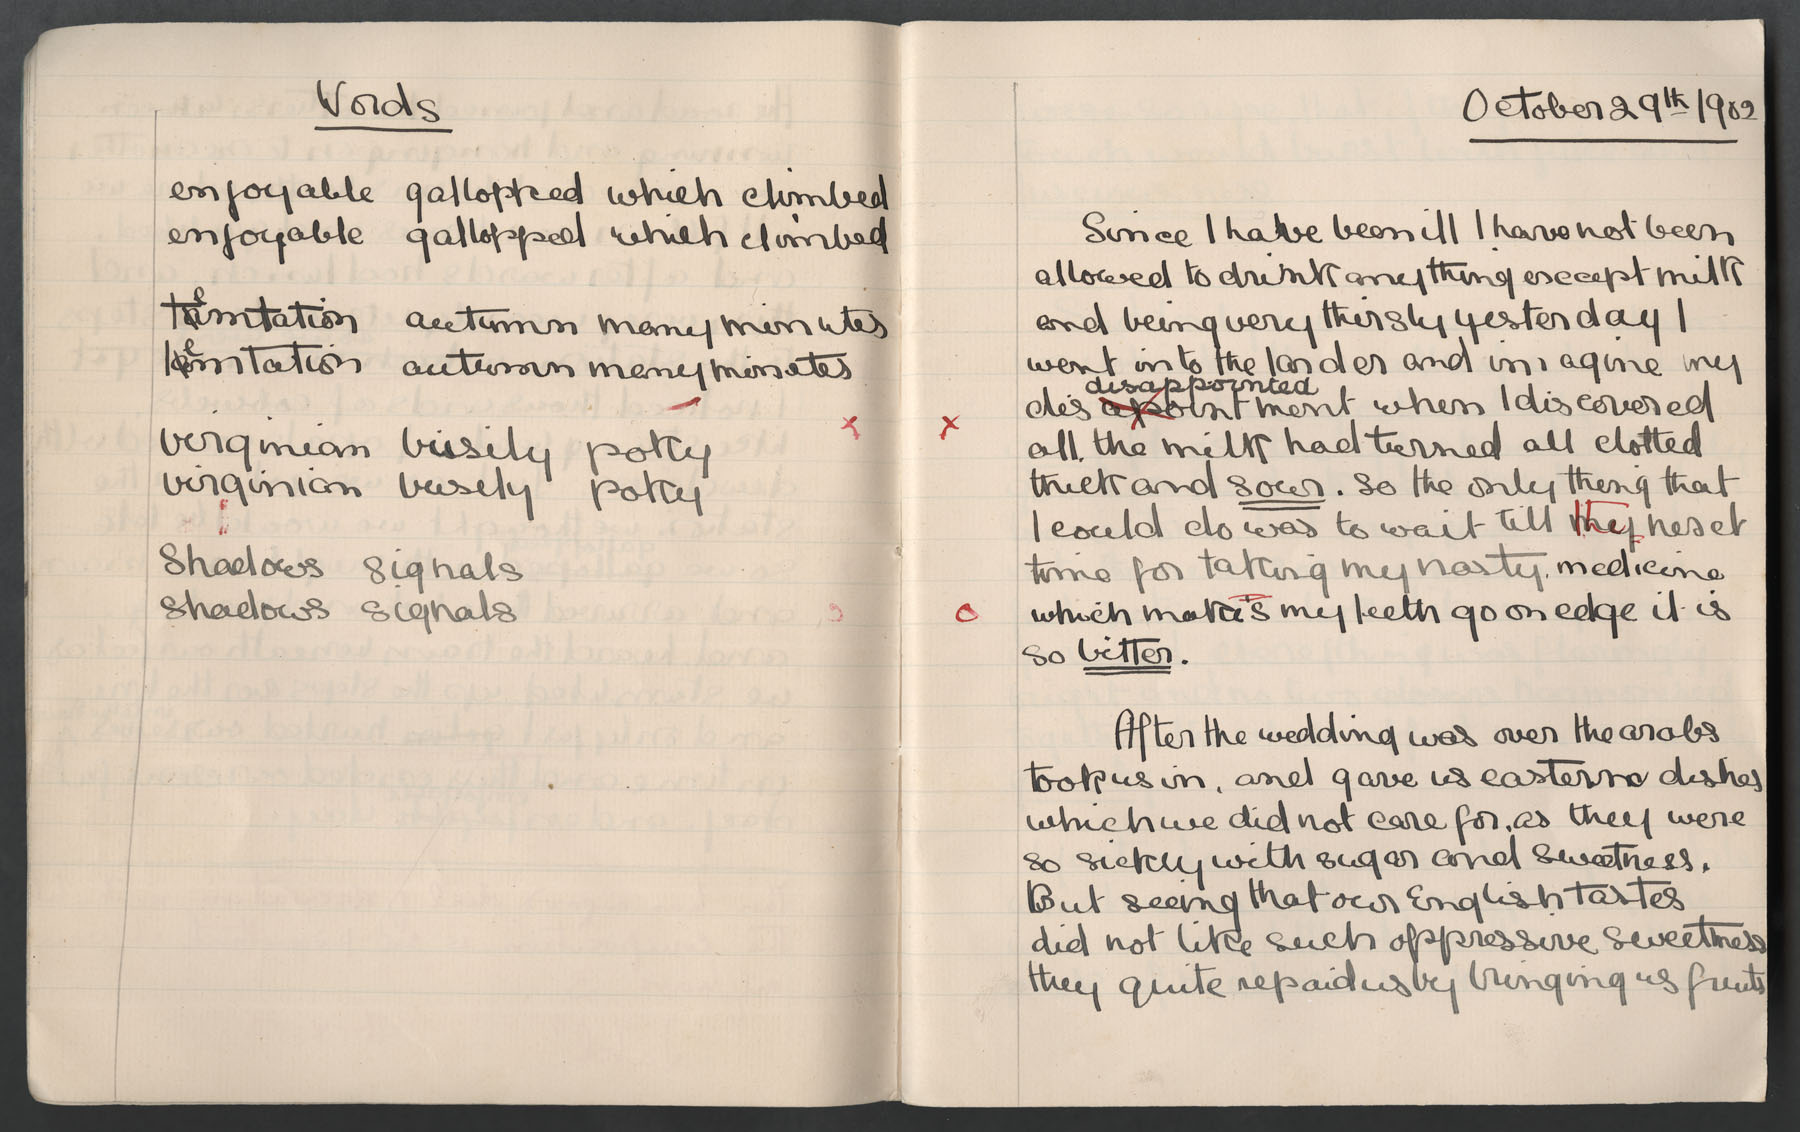 Words
enjoyable gallopped which climbed
enjoyable gallopped which climbed
autumn many minutes
autumn many minutes
virginian busily poky
virginian busely poky
Shadows signals
shadows signals
October 29th 1902
Since I have been ill I have not been
allowed to drink anything except milk
and being very thirsty yesterday I
went into the larder and imagine my
disappointed
dis apointment when I discovered
all the milk had turned all clotted
thick and sour. So the only thing that
I could do was to wait till they next
time for taking my nasty medicine
which makes my teeth go on edge it is
so bitter.
After the wedding was over the arabs
took us in, and gave us eastern dishes
which we did not care for, as they were
so sickly with sugar and sweetness.
But seeing that our English tastes
did not like such oppressive sweetness
they quite repaid us by bringing us fruits